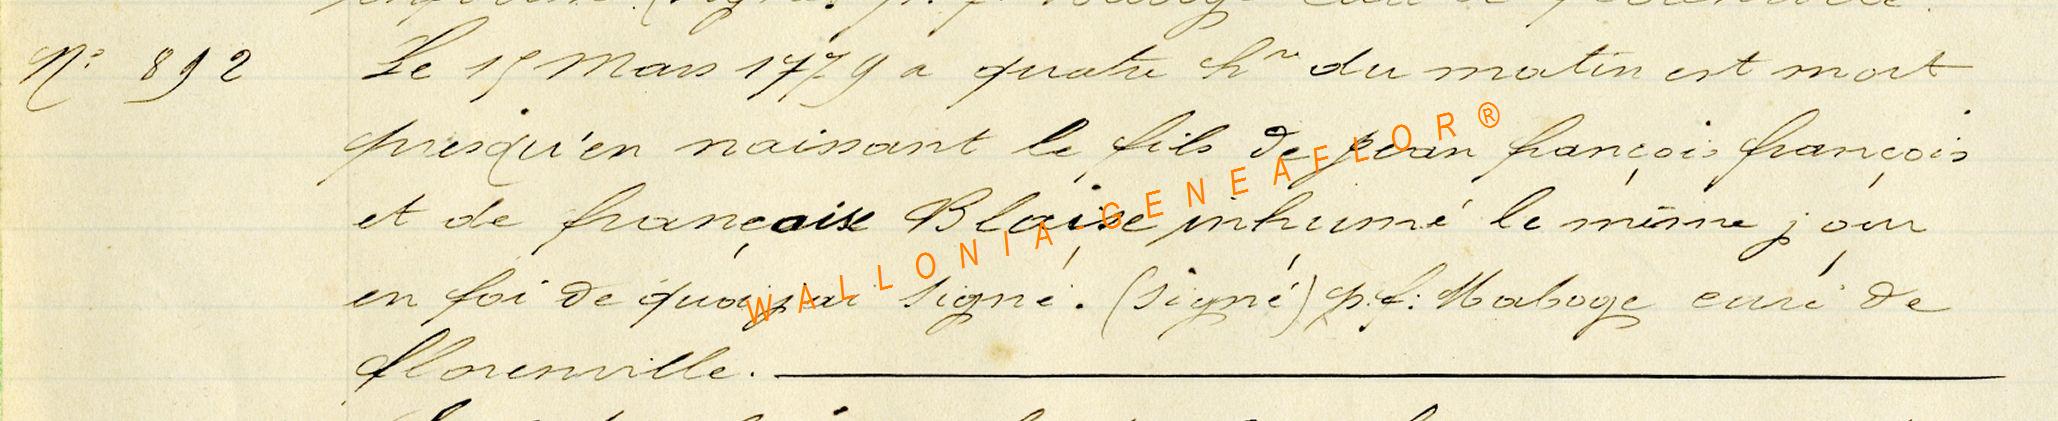 N° 892 Le 15 Mars 1779 a quatre hres du matin est mort
presqu'en naissant le fils de jean françois françois
et de françoise Blaise inhumé le même jour
en foi de quoi j'ai signé. (signé) p. f. Maboge curé de
florenville.
WALLONIA-GENEAFLOR®